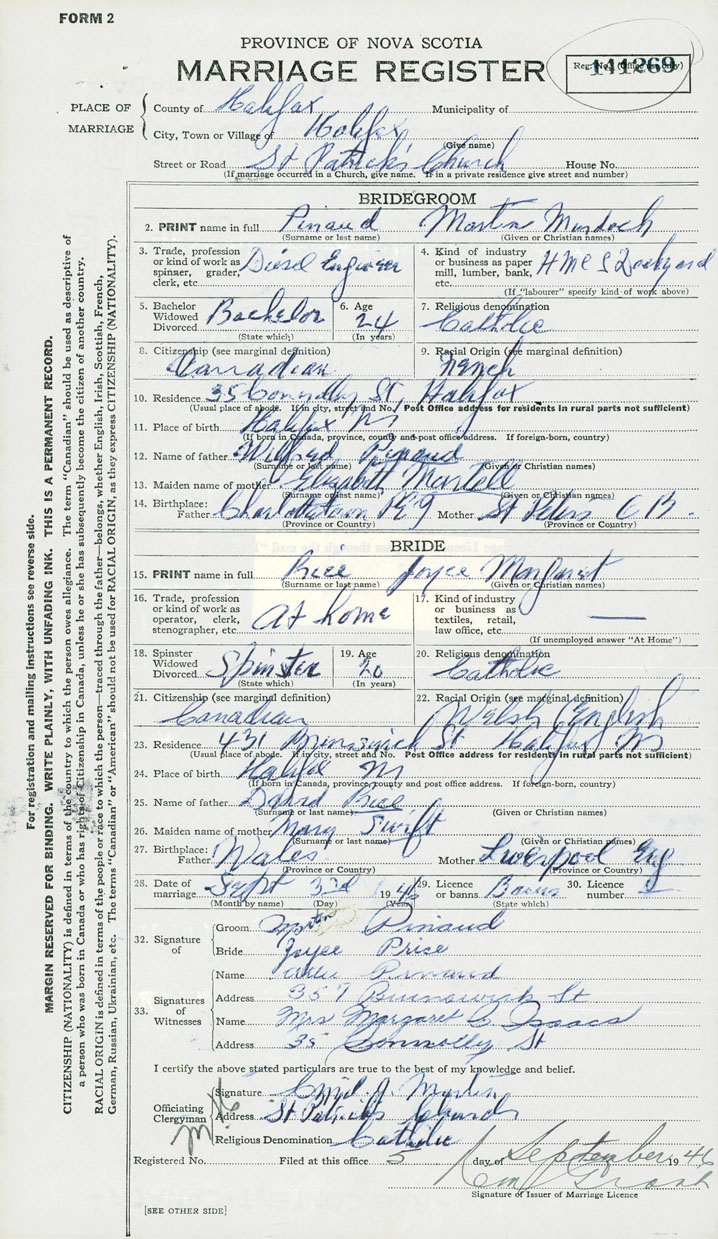 FORM 2
PROVINCE OF NOVA SCOTIA
MARRIAGE REGISTER
Reg. No. (Office use only)
141269
PLACE OF MARRIAGE
County of Halifax Municipality of
City, Town or Village of Halifax
(Give name)
Street or Road St Patrick's Church House No.
(If marriage occurred in a Church, give name. If in a private residence give street and number)
BRIDEGROOM
2. PRINT name in full Pinaud Martin Murdoch
(Surname or last name) (Given or Christian names)
3. Trade, profession or kind of work as spinner, grader, clerk, etc. Diesel Engineer
4. Kind of industry or business as paper mill, lumber, bank, etc. HMCS Dockyard
(If "labourer" specify kind of work above)
5. Bachelor Widowed Divorced Bachelor
(State which)
6. Age 24
(In years)
7. Religious denomination
Catholic
8. Citizenship (see marginal definition)
Canadian
9. Racial Origin (see marginal definition)
French
10. Residence 35 Connolly St, Halifax
(Usual place of abode. If in city, street and No. Post Office address for residents in rural parts not sufficient)
11. Place of birth Halifax NS
(If born in Canada, province, county and post office address. If foreign-born, country)
12. Name of father Wilfred Pinaud
(Surname or last name) (Given or Christian names)
13. Maiden name of mother Elizabeth Martell
(Surname or last name) (Given or Christian names)
14. Birthplace: Father Charlottetown PEI Mother St Peters C B.
(Province or Country) (Province or Country)
BRIDE
15. PRINT name in full Price Joyce Margaret
(Surname or last name) (Given or Christian names)
16. Trade, profession or kind of work as operator, clerk, stenographer, etc. At home
17. Kind of industry or business as textiles, retail, law office, etc. —
(If unemployed answer "At Home")
18. Spinster Widowed Divorced Spinster
(State which)
19. Age 20
(In years)
20. Religious denomination
Catholic
21. Citizenship (see marginal definition)
Canadian
22. Racial Origin (see marginal definition)
Welsh English
23. Residence 431 Brunswick St Halifax NS
(Usual place of abode. If in city, street and No. Post Office address for residents in rural parts not sufficient)
24. Place of birth Halifax NS
(If born in Canada, province, county and post office address. If foreign-born, country)
25. Name of father David Price
(Surname or last name) (Given or Christian names)
26. Maiden name of mother Mary Swift
(Surname or last name) (Given or Christian names)
27. Birthplace: Father Wales Mother Liverpool Eng
(Province or Country) (Province or Country)
28. Date of marriage Sept 3rd 1946
(Month by name) (Day) (Year)
29. Licence or banns Banns
(State which)
30. Licence number —
32. Signature of
Groom Martin Pinaud
Bride Joyce Price
33. Signatures of Witnesses
Name Pinaud
Address 357 Brunswick St
Name Mrs Margaret C. Isaacs
Address 35 Connolly St
I certify the above stated particulars are true to the best of my knowledge and belief.
Officiating Clergyman
Signature J. Martin
Address St Patrick's Church
Religious Denomination Catholic
Registered No. Filed at this office 5 day of September 1946
Signature of Issuer of Marriage Licence
[SEE OTHER SIDE]
For registration and mailing instructions see reverse side.
MARGIN RESERVED FOR BINDING. WRITE PLAINLY, WITH UNFADING INK. THIS IS A PERMANENT RECORD.
CITIZENSHIP (NATIONALITY) is defined in terms of the country to which the person owes allegiance. The term "Canadian" should be used as descriptive of
a person who was born in Canada or who has rights of Citizenship in Canada, unless he or she has subsequently become the citizen of another country.
RACIAL ORIGIN is defined in terms of the people or race to which the person—traced through the father—belongs, whether English, Irish, Scottish, French,
German, Russian, Ukrainian, etc. The terms "Canadian" or "American" should not be used for RACIAL ORIGIN, as they express CITIZENSHIP (NATIONALITY).